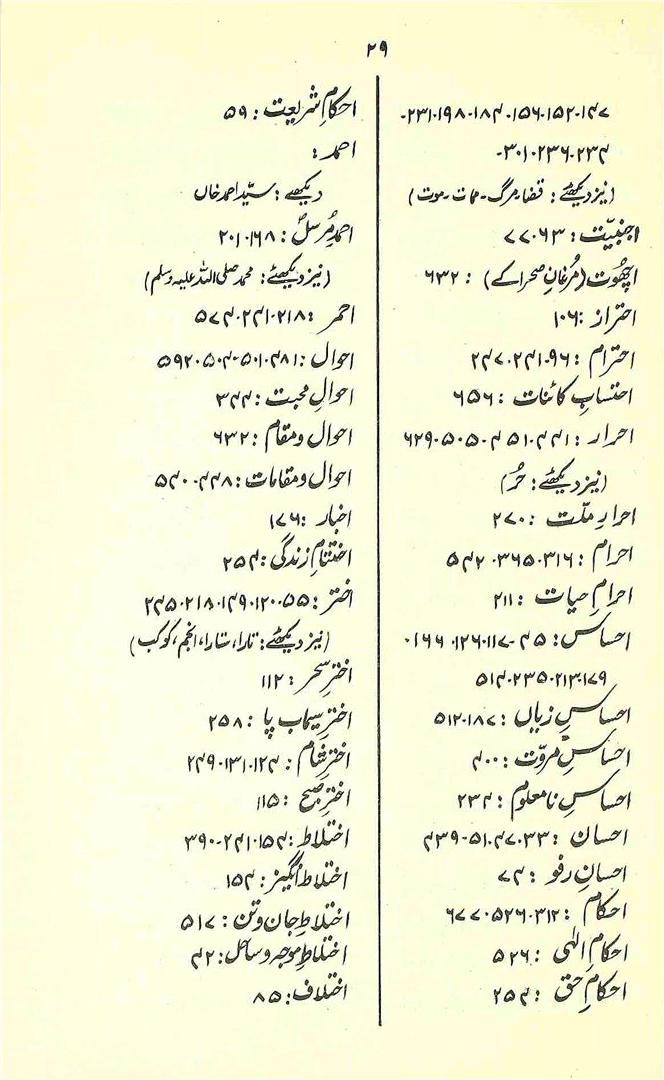 ۲۹
۱۴۷۰۱۵۲۰۱۵۶۰۱۸۴۰۱۹۸۰۲۳۱۰
۲۳۴۰۲۳۶۰۳۰۱۰
(نیز دیکھئے: قضا۔مرگ۔ممات۔موت)
اجنبیّت: ۶۳۔۷۷
اچھوت (مُرغانِ صحرا کے): ۶۳۲
احتراز: ۱۰۶
احترام: ۹۶۔۲۴۱۔۲۴۷
احتسابِ کائنات: ۶۵۶
احرار: ۴۴۱۔۴۵۱۔۵۰۵۔۶۲۹
(نیز دیکھئے: حُر)
احرارِ ملّت: ۲۷۰
احرام: ۳۱۶۔۳۶۵۔۵۴۲
احرامِ حیات: ۲۱۱
احساس: ۴۵۔۱۱۷۔۱۲۶۔۱۶۶۔
۱۷۹۔۲۱۳۔۲۳۵۔۵۱۴
احساسِ زیاں: ۱۸۷۔۵۱۲
احساسِ مروّت: ۴۰۰
احساسِ نامعلوم: ۲۳۴
احسان: ۳۳۔۴۷۔۵۱۔۴۳۹
احسانِ رفو: ۷۴
احکام: ۳۱۲۔۵۲۶۔۶۷۷
احکامِ الٰہی: ۵۲۶
احکامِ حق: ۲۵۴
احکامِ شریعت: ۵۹
احمد:
دیکھئے: سیّد احمد خاں
احمدِ مُرسلؐ: ۱۶۸۔۲۰۱
(نیز دیکھئے: محمد صلی اللہ علیہ وسلم)
احمر: ۲۱۸۔۲۴۱۔۵۷۴
احوال: ۴۸۱۔۵۰۱۔۵۰۴۔۵۹۲
احوالِ محبت: ۳۴۴
احوال و مقام: ۶۳۲
احوال و مقامات: ۴۴۸۔۵۴۰
اخبار: ۱۷۶
اختتامِ زندگی: ۲۵۴
اختر: ۵۵۔۱۲۰۔۱۴۹۔۲۱۸۔۲۴۵
(نیز دیکھئے: تارا، ستارا، انجم، کوکب)
اخترِ سحر: ۱۱۲
اخترِ سیماب پا: ۲۵۸
اخترِ شام: ۱۲۴۔۱۳۱۔۲۴۹
اخترِ صبح: ۱۱۵
اختلاط: ۱۵۴۔۲۴۱۔۳۹۰
اختلاط انگیز: ۱۵۴
اختلاطِ جان و تن: ۵۱۷
اختلاطِ موجہ و ساحل: ۴۲
اختلاف: ۸۵